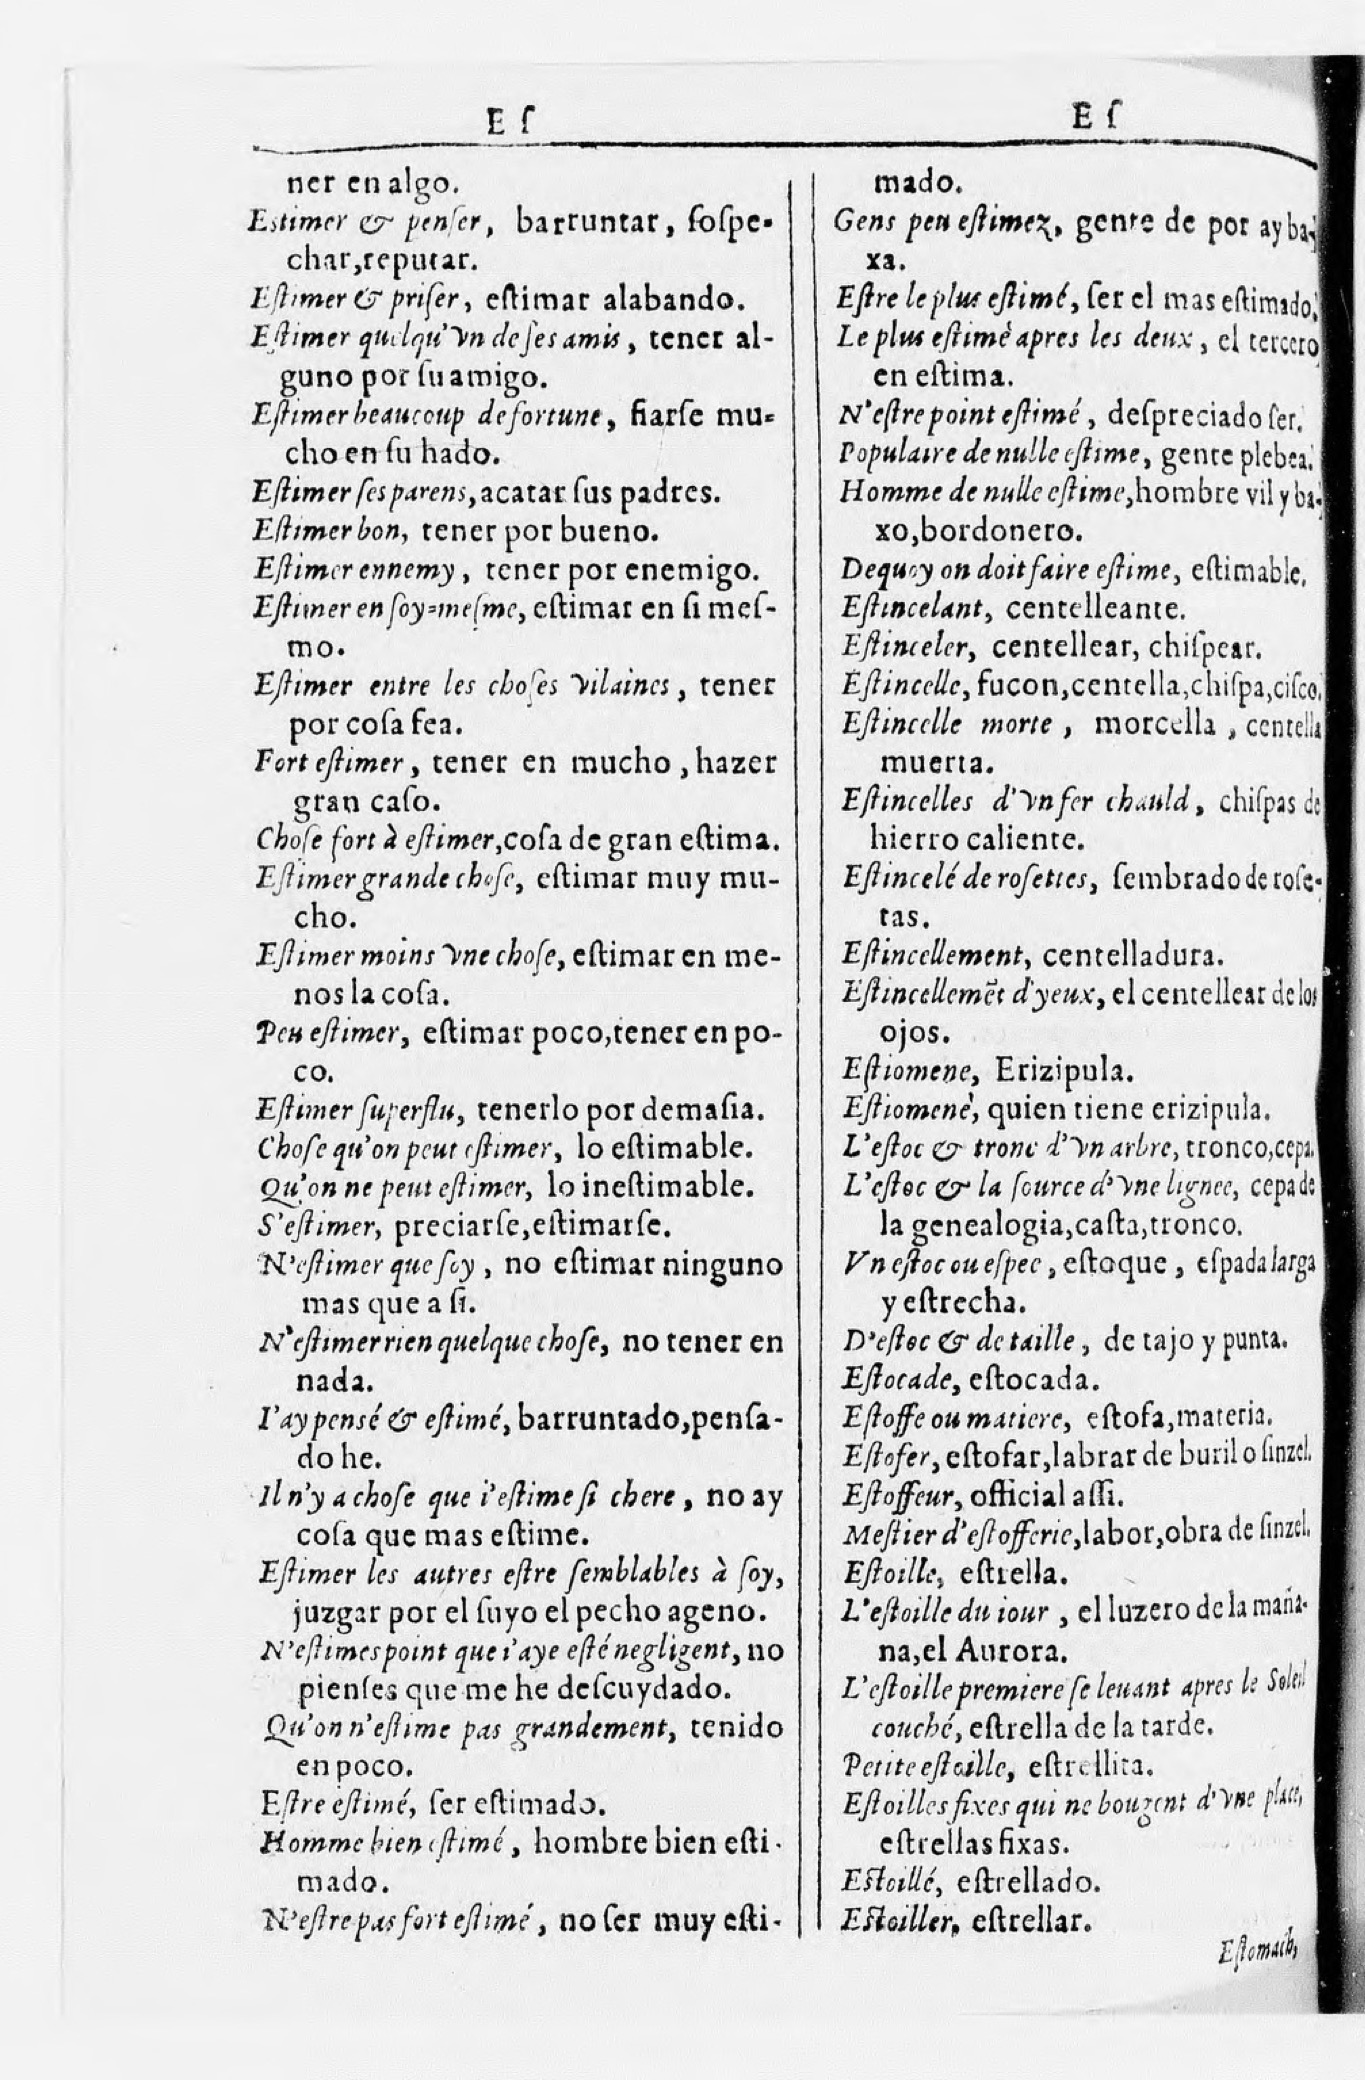 E ſ
ner en algo.
Estimer & penſer, barruntar, ſoſpe-
char,reputar.
Eſtimer & priſer, eſtimar alabando.
Eſtimer quelqu'vn de ſes amis, tener al-
guno por ſu amigo.
Eſtimer beaucoup de fortune, fiarſe mu-
cho en ſu hado.
Eſtimer ſes parens, acatar ſus padres.
Eſtimer bon, tener por bueno.
Eſtimer ennemy, tener por enemigo.
Eſtimer en ſoy-meſme, eſtimar en ſi meſ-
mo.
Eſtimer entre les choſes vilaines, tener
por coſa fea.
Fort eſtimer, tener en mucho, hazer
gran caſo.
Choſe fort à eſtimer, coſa de gran eſtima.
Eſtimer grande choſe, eſtimar muy mu-
cho.
Eſtimer moins vne choſe, eſtimar en me-
nos la coſa.
Peu eſtimer, eſtimar poco,tener en po-
co.
Eſtimer ſuperflu, tenerlo por demaſia.
Choſe qu'on peut eſtimer, lo eſtimable.
Qu'on ne peut eſtimer, lo ineſtimable.
S'eſtimer, preciarſe,eſtimarſe.
N'eſtimer que ſoy, no eſtimar ninguno
mas que a ſi.
N'eſtimer rien quelque choſe, no tener en
nada.
I'ay pensé & eſtimé, barruntado,penſa-
do he.
Il n'y a choſe que i'eſtime ſi chere, no ay
coſa que mas eſtime.
Eſtimer les autres eſtre ſemblables à ſoy,
juzgar por el ſuyo el pecho ageno.
N'eſtimes point que i'aye eſté negligent, no
pienſes que me he deſcuydado.
Qu'on n'eſtime pas grandement, tenido
en poco.
Eſtre eſtimé, ſer eſtimado.
Homme bien eſtimé, hombre bien eſti-
mado.
N'eſtre pas fort eſtimé, no ſer muy eſti-
E ſ
mado.
Gens peu eſtimez, gente de por ay ba-
xa.
Eſtre le plus eſtimé, ſer el mas eſtimado.
Le plus eſtimè apres les deux, el tercero
en eſtima.
N'eſtre point eſtimé, deſpreciado ſer.
Populaire de nulle eſtime, gente plebea.
Homme de nulle eſtime, hombre vil y ba-
xo,bordonero.
Dequoy on doit faire eſtime, eſtimable.
Eſtincelant, centelleante.
Eſtinceler, centellear, chiſpear.
Eſtincelle, fucon,centella,chiſpa,ciſco.
Eſtincelle morte, morcella, centella
muerta.
Eſtincelles d'vn fer chauld, chiſpas de
hierro caliente.
Eſtincelé de roſettes, ſembrado de roſe-
tas.
Eſtincellement, centelladura.
Eſtincellemẽt d'yeux, el centellear de los
ojos.
Eſtiomene, Erizipula.
Eſtiomenè, quien tiene erizipula.
L'eſtoc & tronc d'vn arbre, tronco,cepa.
L'eſtoc & la ſource d'vne lignee, cepa de
la genealogia,caſta,tronco.
Vn eſtoc ou eſpee, eſtoque, eſpada larga
y eſtrecha.
D'eſtoc & de taille, de tajo y punta.
Eſtocade, eſtocada.
Eſtoffe ou matiere, eſtofa,materia.
Eſtofer, eſtofar,labrar de buril o ſinzel.
Eſtoffeur, official aſſi.
Meſtier d'eſtofferie, labor,obra de ſinzel.
Eſtoille, eſtrella.
L'eſtoille du iour, el luzero de la maña-
na,el Aurora.
L'eſtoille premiere ſe leuant apres le Soleil
couché, eſtrella de la tarde.
Petite eſtoille, eſtrellita.
Eſtoilles fixes qui ne bougent d'vne place,
eſtrellas fixas.
Eſtoillé, eſtrellado.
Eſtoiller, eſtrellar.
Eſtomach,